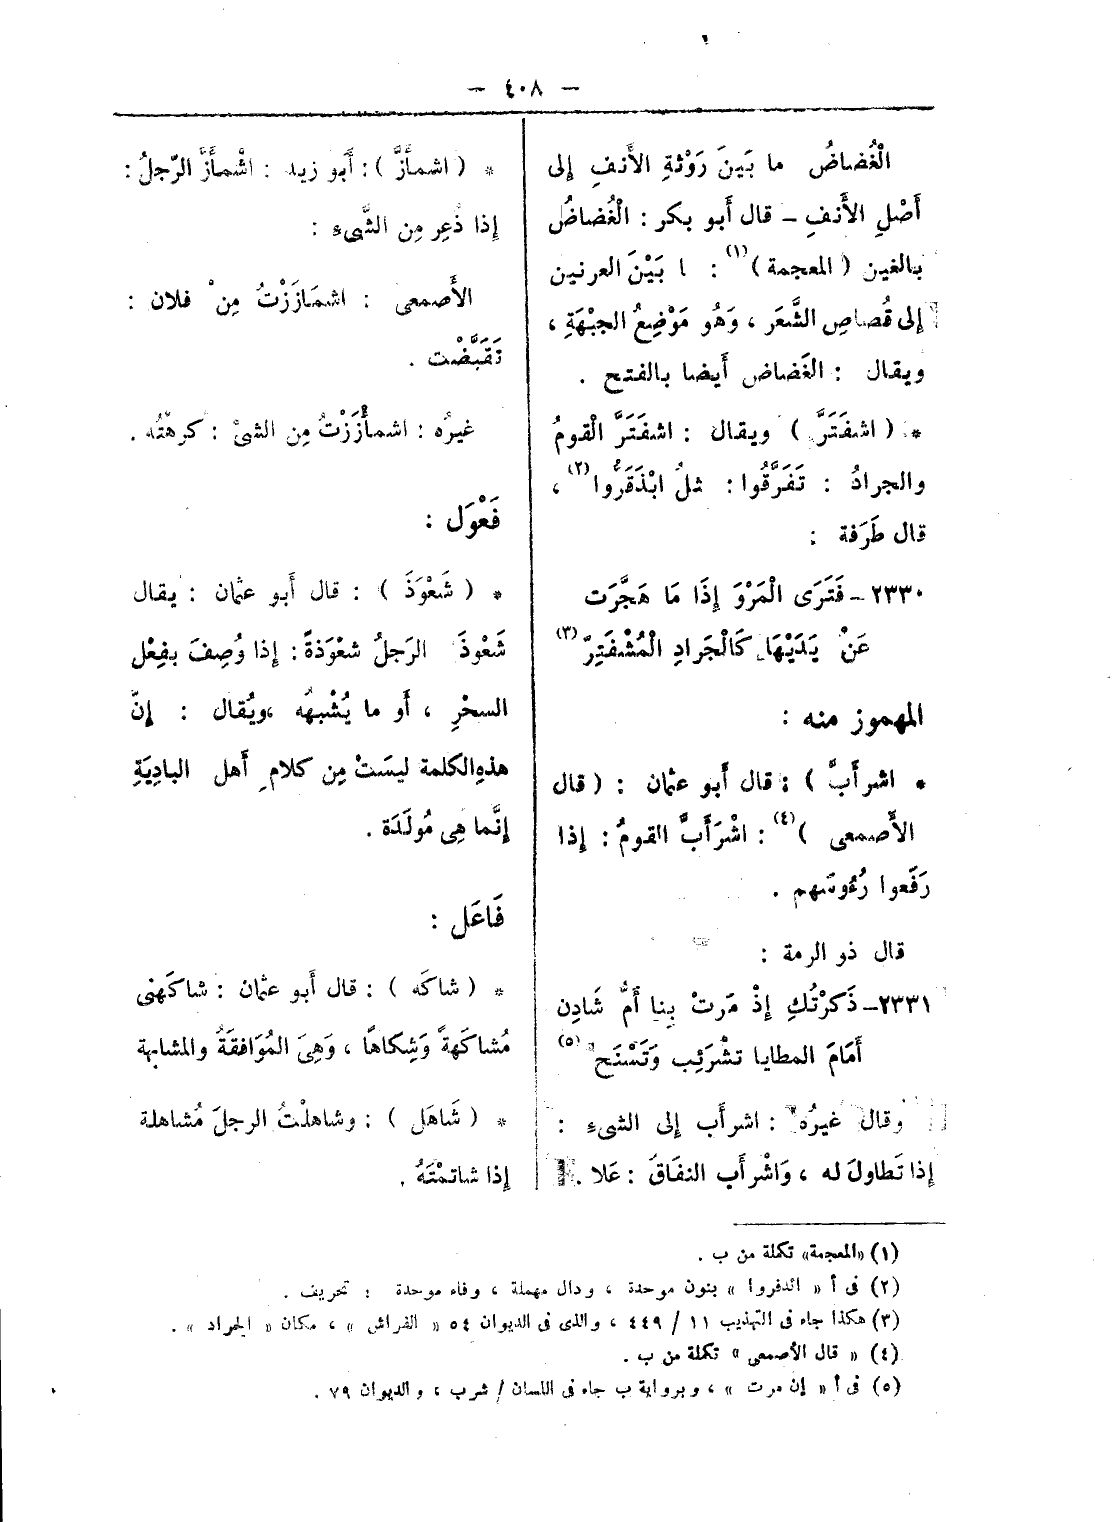 — ٤٠٨ —
الْغُضاضُ ما بَينَ رَوْثةِ الأَنفِ إلى
أَصْلِ الأَنفِ – قال أَبو بكر : الْغُضاضُ
بالغين ( المعجمة )(١) : ا بَيْنَ العرنين
إلى قُصاصِ الشَّعَر ، وَهُو مَوْضِعُ الجبْهَةِ ،
ويقال : الغَضاض أَيضا بالفتح .
* ( اشفَتَرَّ ) ويقال : اشفَتَرَّ الْقومُ
والجرادُ : تَفَرَّقُوا : ثلُ ابْذَقَرُّوا(٢) ،
قال طَرَفة :
٢٣٣٠ – فَتَرَى الْمَرْوَ إِذَا مَا هَجَّرَت
عَنْ يَدَيْهَا كَالْجَرادِ الْمُشْفَتِرّ(٣)
المهموز منه :
* اشرأَبَّ ) : قال أَبو عثمان : ( قال
الأَصمعى )(٤) : اشْرَأَبَّ القومُ : إذا
رَفَعوا رُءُوسَهم .
قال ذو الرمة :
٢٣٣١ – ذَكَرْتُكِ إذْ مَرَتْ بِنا أُمُّ شَادِن
أَمَامَ المطايا تشْرَئِب وَتَسْنَح(٥)
وقال غيرُه : اشرأَب إلى الشىءِ :
إذا تَطاولَ له ، وَاشْرأَب النفَاقُ : عَلا .
* ( اشمأَزَّ ) : أَبو زيد : اشْمأَزَّ الرّجلُ :
إذا ذُعِر مِن الشَّىءِ :
الأَصمعى : اشمَازَزْتُ مِنْ فلان :
تَقَبَّضْت .
غيرُه : اشمأْزَزْتُ مِن الشىْ : كرهْتُه .
فَعْوَل :
* ( شَعْوَذَ ) : قال أَبو عثمان : يقال
شَعْوذَ الرَجلُ شعْوَذةً : إذا وُصِفَ بفِعْل
السحْرِ ، أَو ما يُشْبهُه ،ويُقال : إنّ
هذهِ الكلمة ليسَتْ مِن كلامِ أَهل البادِيَةِ
إنَّما هِى مُولَدَة .
فَاعَل :
* ( شاكَه ) : قال أَبو عثمان : شاكَهنى
مُشاكَهةً وَشِكاهًا ، وَهِىَ المُوَافقَةُ والمشابهة
* ( شَاهَل ) : وشاهلْتُ الرجلَ مُشاهلة
إذا شاتمْتَهُ .
(١) «المعجمة» تكملة من ب .
(٢) فى أ « اندفروا » بنون موحدة ، ودال مهملة ، وفاء موحدة : تحريف .
(٣) هكذا جاء فى التهذيب ١١ / ٤٤٩ ، والذى فى الديوان ٥٤ « الفراش » ، مكان « الجراد » .
(٤) « قال الأصمعى » تكملة من ب .
(٥) فى أ « إن مرت » ، وبرواية ب جاء فى اللسان / شرب ، والديوان ٧٩ .